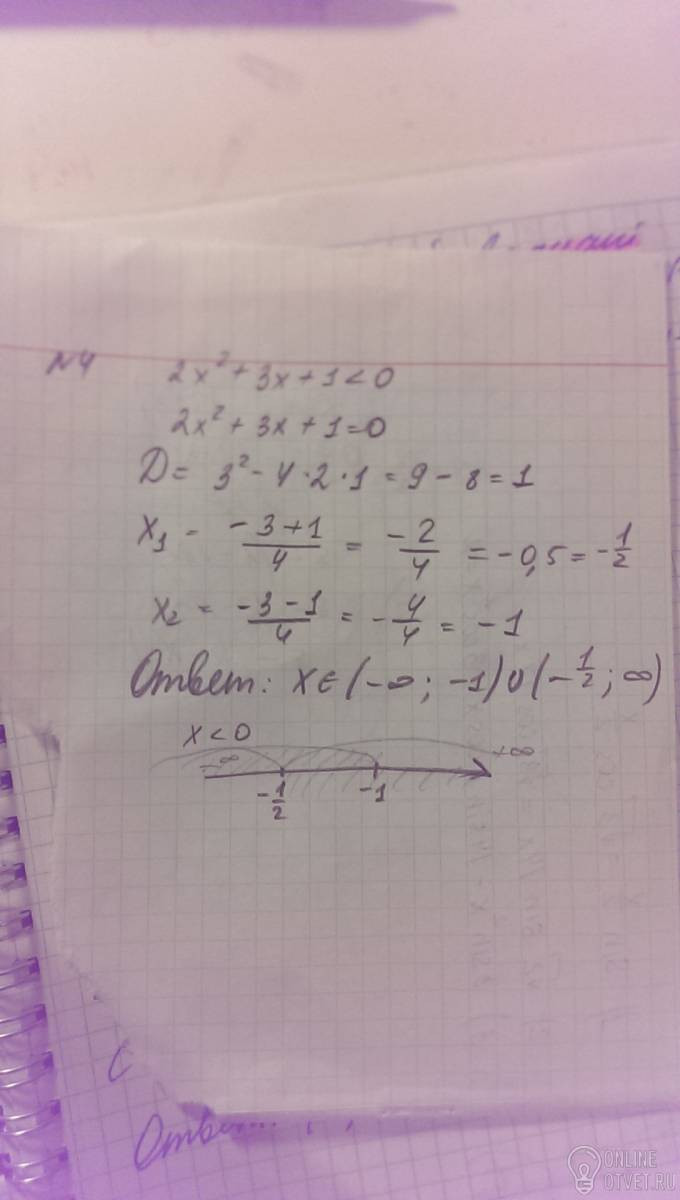 N4
2x² + 3x + 1 < 0
2x² + 3x + 1 = 0
D = 3² - 4 · 2 · 1 = 9 - 8 = 1
x₁ - \frac{-3+1}{4} = \frac{-2}{4} = -0,5 = -\frac{1}{2}
x₂ = \frac{-3-1}{4} = -\frac{4}{4} = -1
Ответ: x ∈ (-∞; -1) ∪ (-\frac{1}{2}; ∞)
x < 0
-∞ +∞
-\frac{1}{2} -1
С
Ответ
ONLINE
OTVET.RU